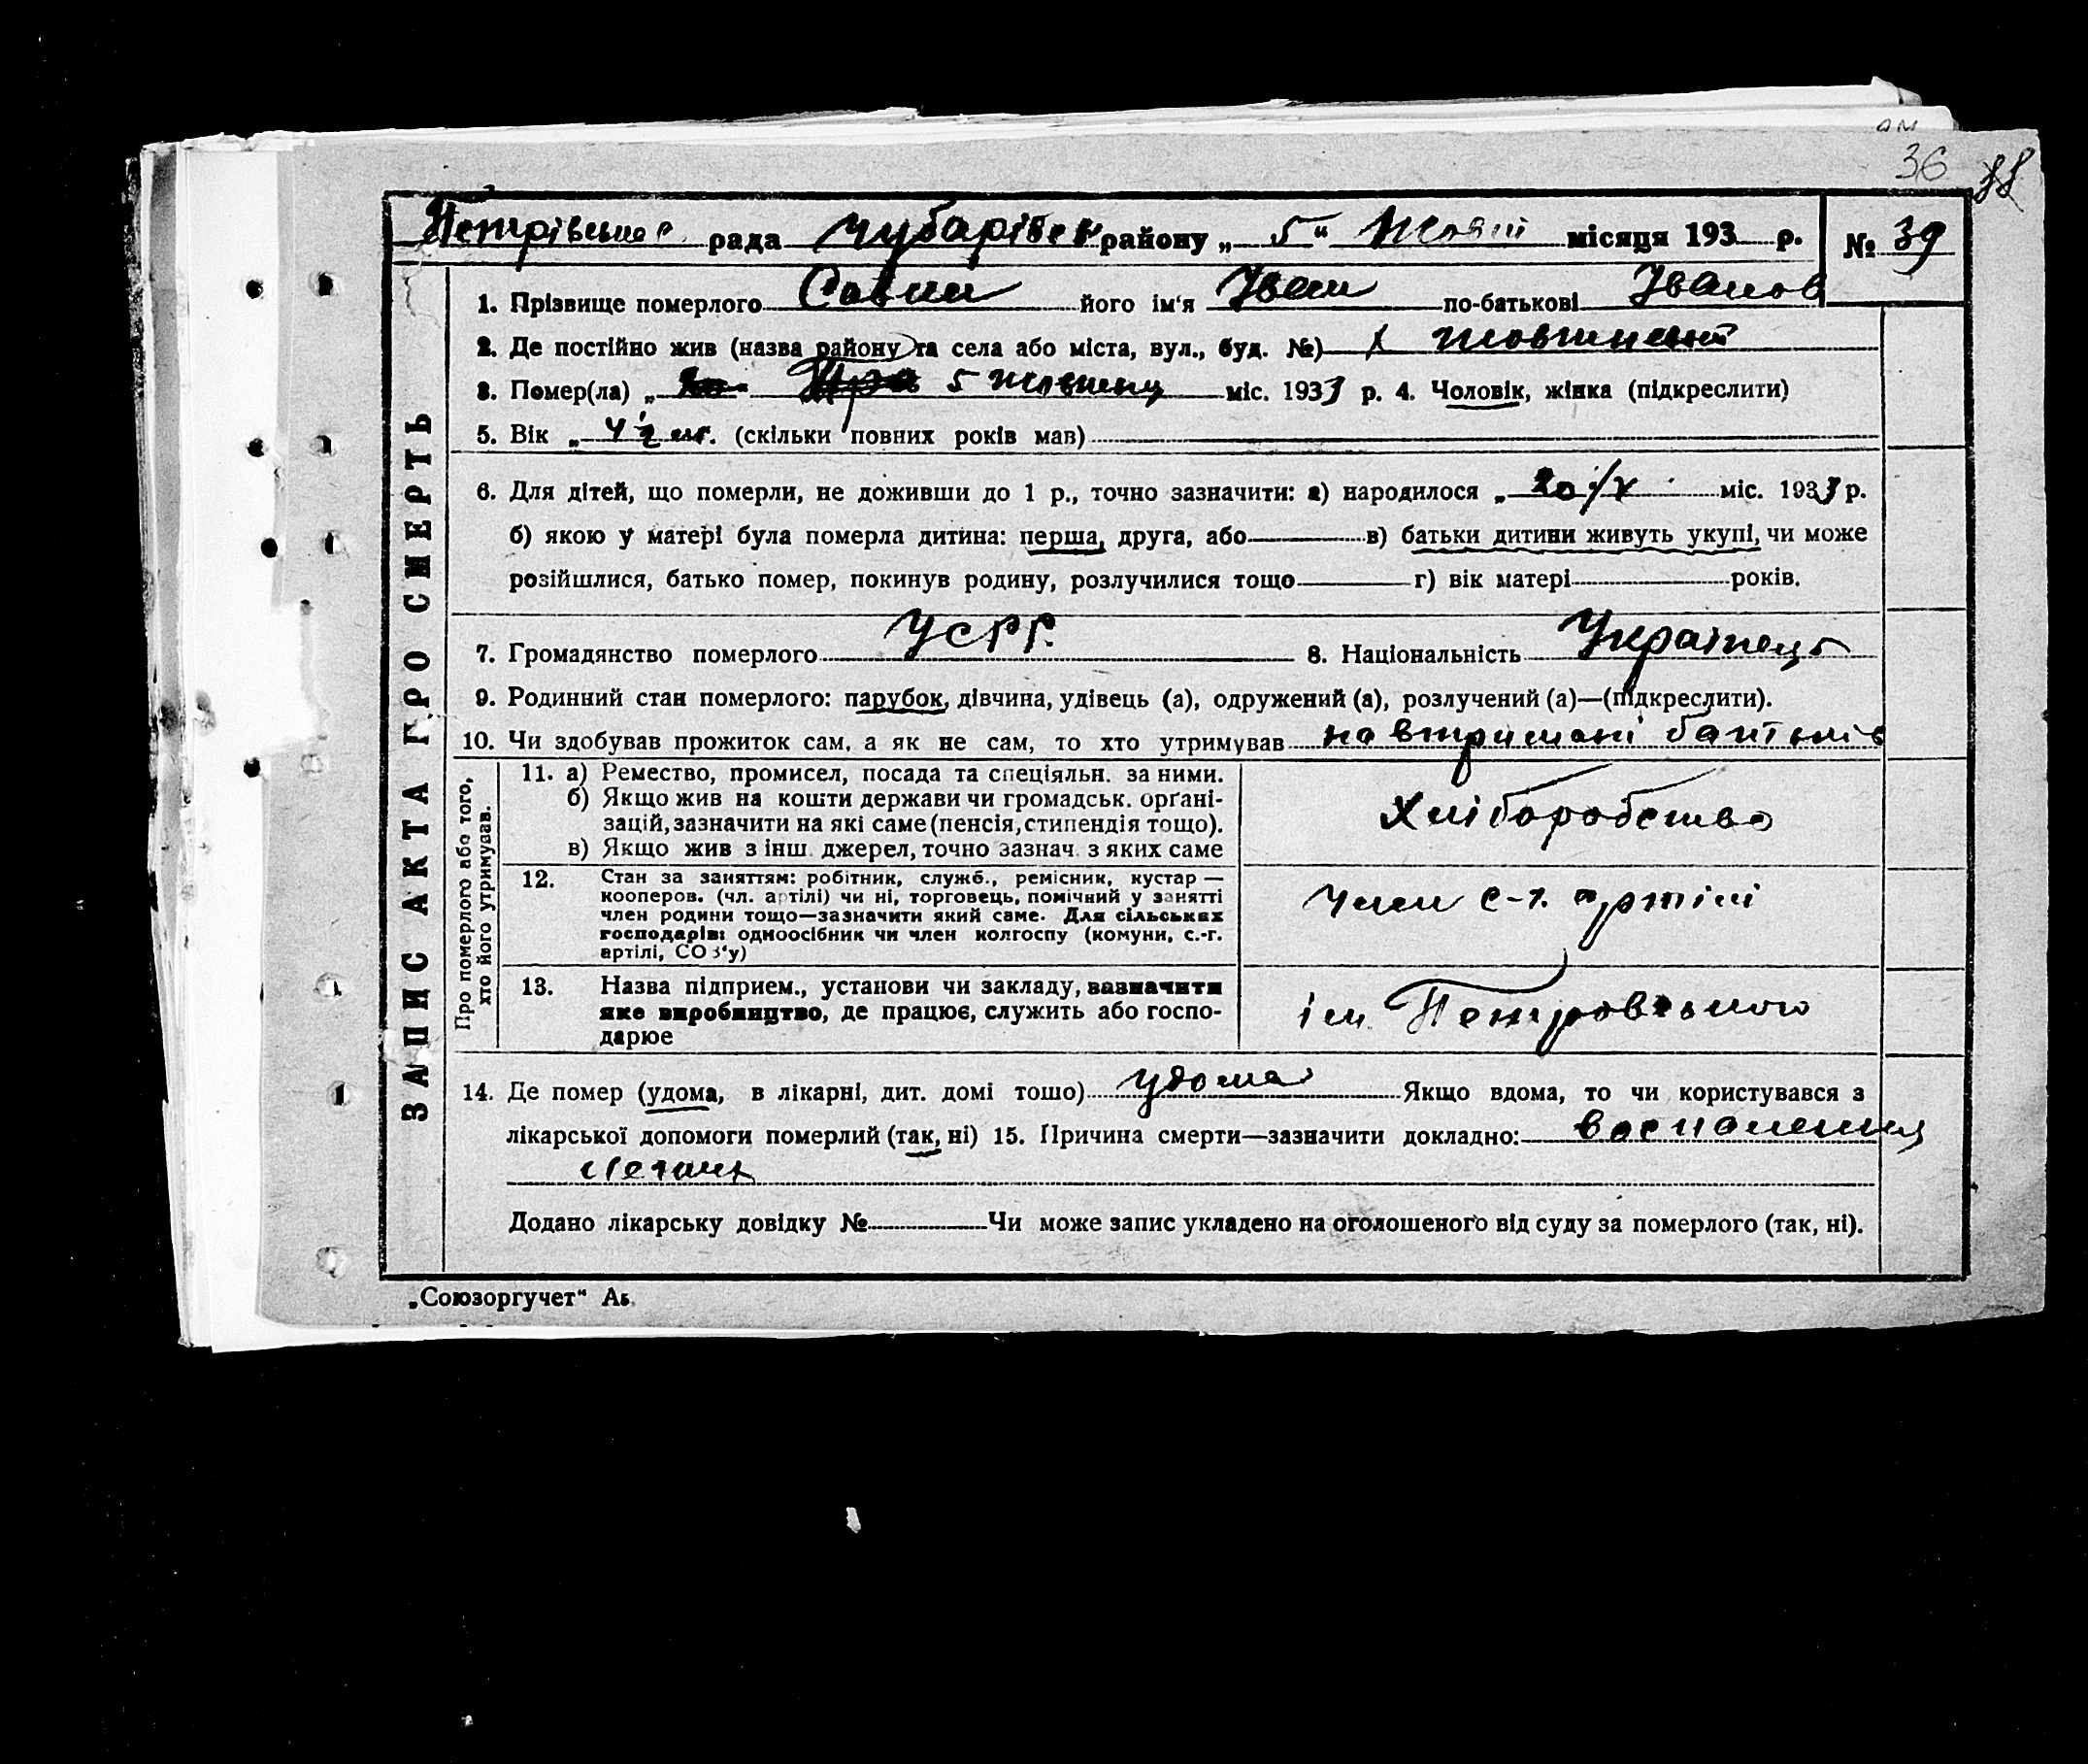 36
39
Петрівське рада Чубарівськ району „ 5 “ Жовт місяця 193 р. № 39
ЗАПИС АКТА ПРО СМЕРТЬ
1. Прізвище померлого Савин його ім'я Іван по-батькові Іванов
2. Де постійно жив (назва району та села або міста, вул., буд. №) х
3. Помер(ла) „ 5 жовтня міс. 1933 р. 4. Чоловік, жінка (підкреслити)
5. Вік „ (скільки повних років мав)
6. Для дітей, що померли, не доживши до 1 р., точно зазначити: а) народилося „ 20/V міс. 1933 р.
б) якою у матері була померла дитина: перша, друга, або в) батьки дитини живуть укупі, чи може
розійшлися, батько помер, покинув родину, розлучилися тощо г) вік матері років.
7. Громадянство померлого УСРР. 8. Національність Українець
9. Родинний стан померлого: парубок, дівчина, удівець (а), одружений (а), розлучений (а)—(підкреслити).
10. Чи здобував прожиток сам, а як не сам, то хто утримував на втримані батьків
Про померлого або того,
хто його утримував.
11. а) Ремество, промисел, посада та спеціяльн. за ними.
б) Якщо жив на кошти держави чи громадськ. орґані-
зацій, зазначити на які саме (пенсія, стипендія тощо).
в) Якщо жив з інш. джерел, точно зазнач. з яких саме
Хліборобство
12. Стан за заняттям: робітник, служб., ремісник, кустар —
кооперов. (чл. артілі) чи ні, торговець, помічний у занятті
член родини тощо—зазначити який саме. Для сільських
господарів: одноосібник чи член колгоспу (комуни, с.-г.
артілі, СОЗ'у)
член с-г. артілі
13. Назва підприєм., установи чи закладу, зазначити
яке виробництво, де працює, служить або госпо-
дарює
ім. Петровського
14. Де помер (удома, в лікарні, дит. домі тощо) удома Якщо вдома, то чи користувався з
лікарської допомоги померлий (так, ні) 15. Причина смерти—зазначити докладно: воспаления
легких
Додано лікарську довідку № Чи може запис укладено на оголошеного від суду за померлого (так, ні).
„Союзоргучет“